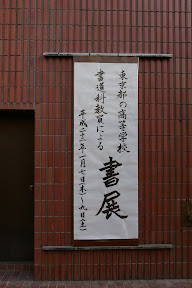 東京都の高等学校
書道科教員による
書展
平成二十三年一月七日(木)～九日(土)